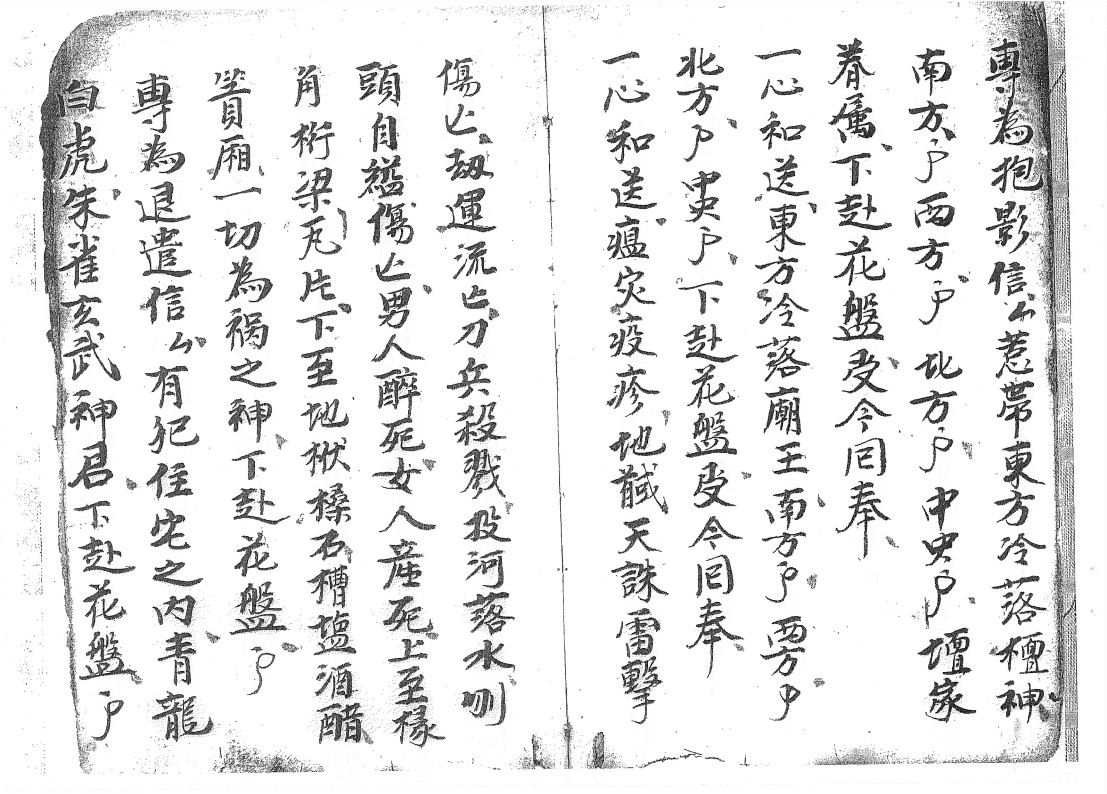 專為抱影信厶惹帶東方冷落壇神
南方卩西方卩北方卩中央卩壇家
眷属下赴花盤受今囘奉
一心和送東方冷落廟王南方卩西方卩
北方卩中央卩下赴花盤受今囘奉
一心和送瘟灾疫疹地誠天誅雷擊
傷亡劫運流亡刀兵殺戮投河落水刎
頭自縊傷亡男人醉死女人產死上至椽
角桁梁瓦片下至地栿槽塩酒醋
簣廂一切為禍之神下赴花盤卩
專為退遣信厶有犯住宅之内青龍
白虎朱雀玄武神君下赴花盤卩